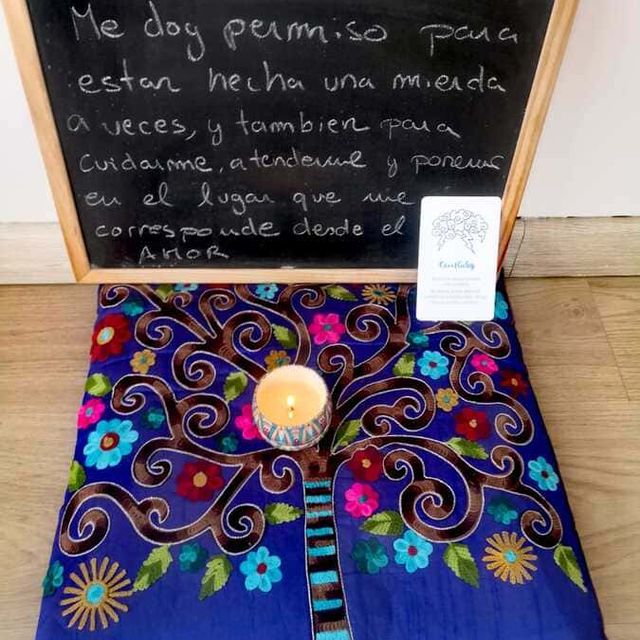 Me doy permiso para
estar hecha una mierda
a veces, y tambien para
cuidarme, atenderme y ponerme
en el lugar que me
corresponde desde el
AMOR